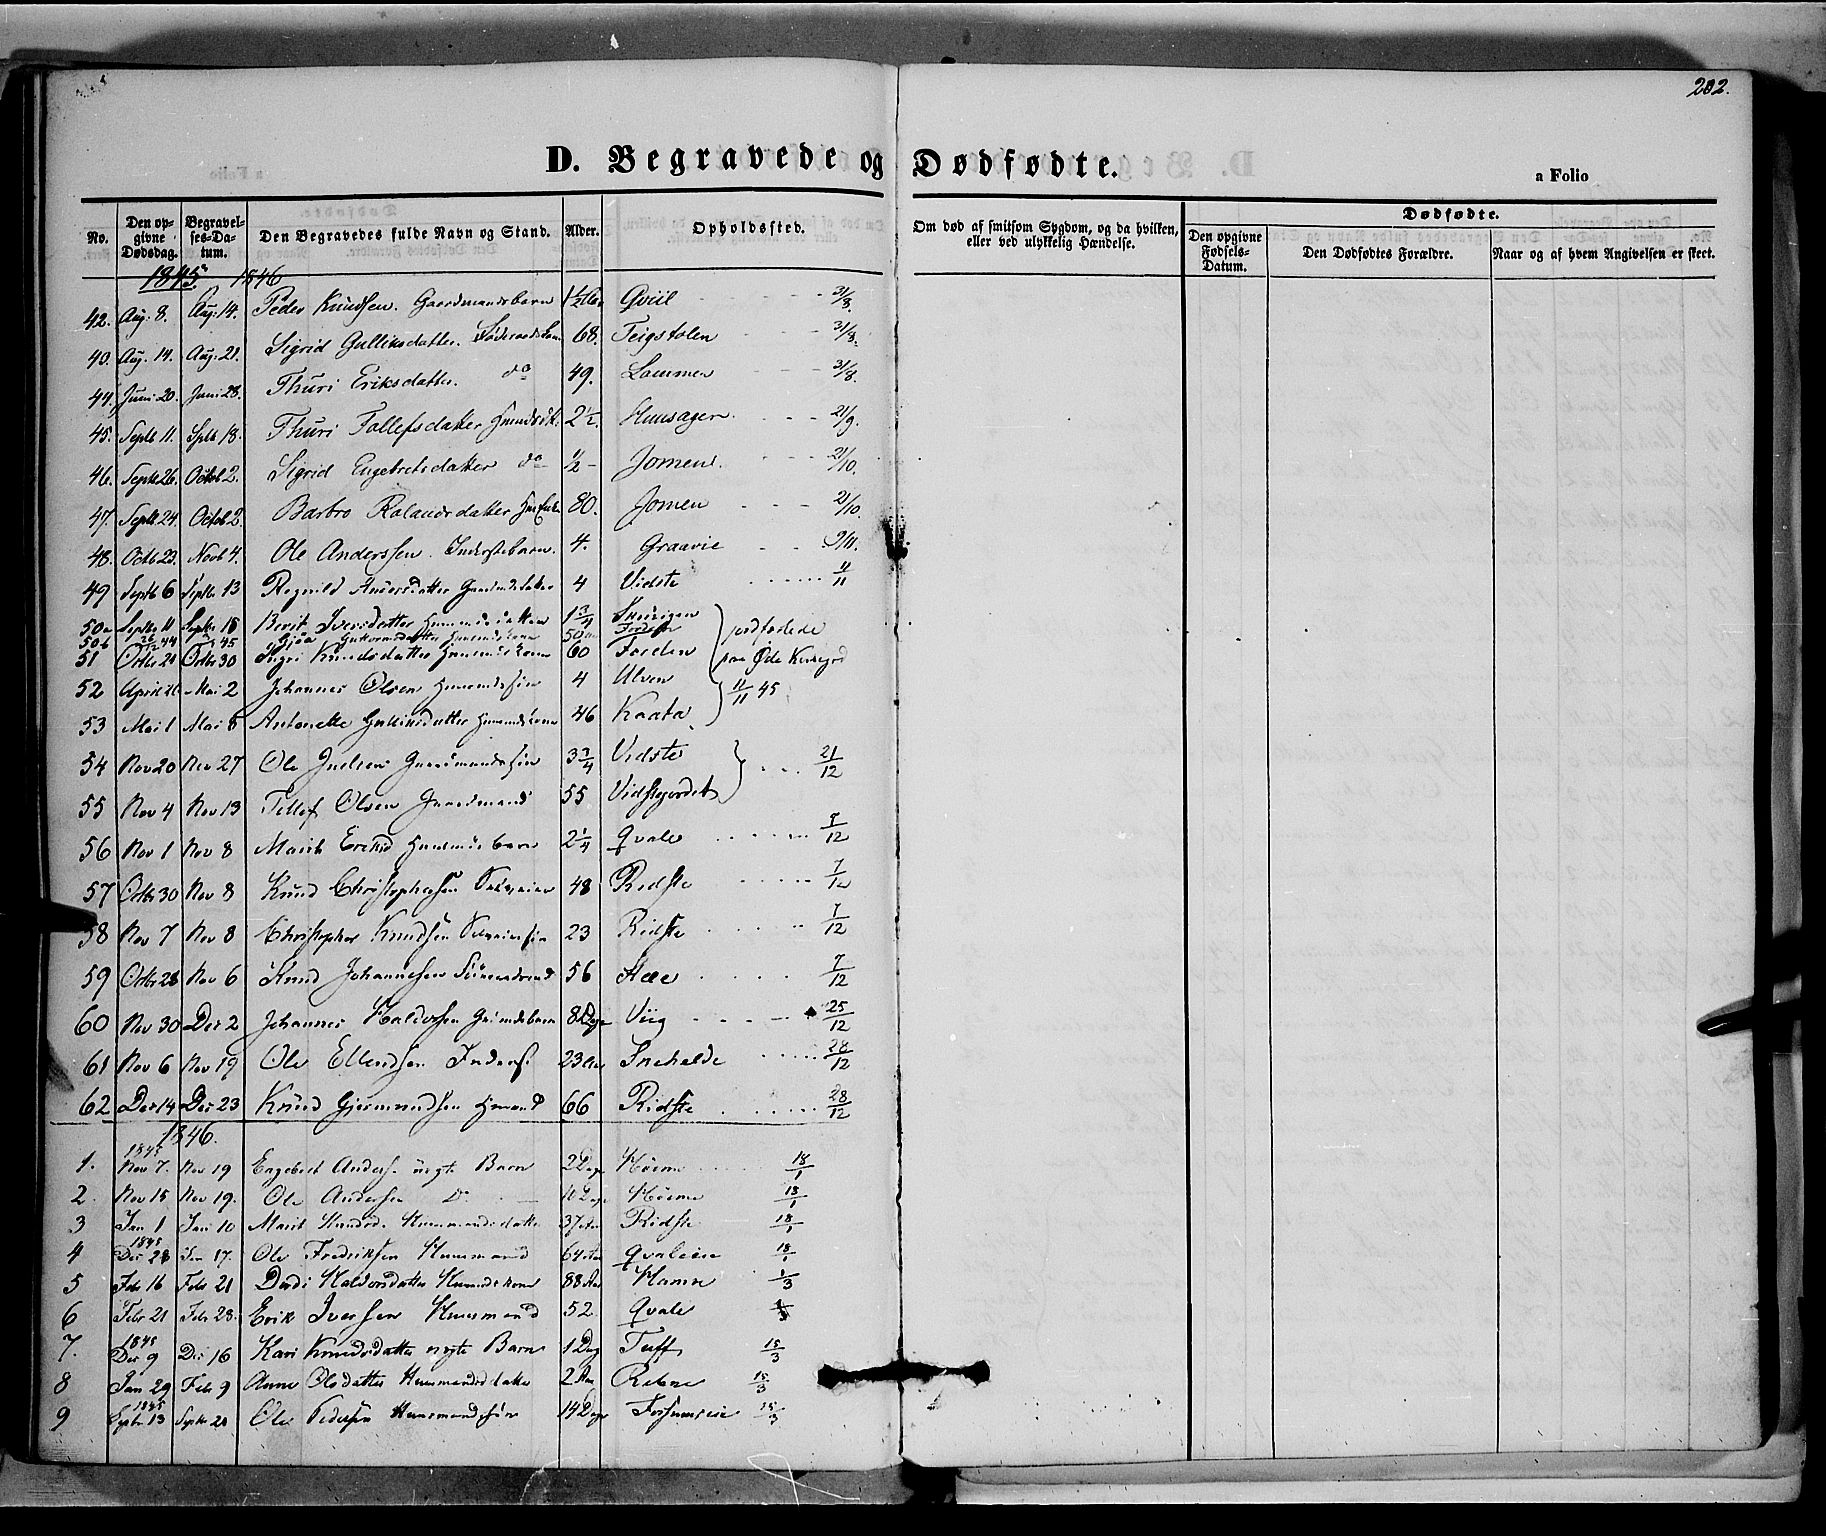 202.
D. Begravede og Dødfødte.
a Folio
No. Den opgivne Dødsdag. Begravelses-Datum. Den Begravedes fulde Navn og Stand. Alder. Opholdssted. Om død af smitsom Sygdom, og da hvilken, eller ved ulykkelig Hændelse. Dødfødte. Den opgivne Fødsels-Datum. Den Dødfødtes Forældre. Naar og af hvem Angivelsen er skeet.
1845 1846
42. Aug. 8. Aug. 14. Peder Knudsen. Gaardmandsbarn 1½ Qviil 31/8.
43. Aug. 14. Aug. 21. Sigrid Gulliksdatter. 68. Teigstolen 31/8.
44. Juni 20. Juni 28. Thuri Eriksdatter. do 49. Lammen 31/8.
45. Septb 11. Sptb 18. Thuri Tollefsdatter 2½. Huusagern. 21/9.
46. Septb 26. Octob 2. Sigrid Engebretsdatter do ½ Jomen. 21/10.
47. Septb 24. Octob 2. Barbro Rolandsdatter 80. Jomen 21/10.
48. Octb 23. Novb 4. Ole Anderssen. Inderstebarn. 4. Graavie 9/11.
49 Septb 6 Septb 13 Ragnild Andersdatter 4 Vidste 11/11
50a Septbr 11 Septbr 18 Berit Iversdatter 1¾
50b 26/12 44 45 Guttormsdatter 50
51 Octbr 21 Octbr 30 Ingri Knudsdatter 60 Forden jordfæstede paa Øde Kirkegrd
52 April 26 Mai 2 Johannes Olsen 4 Ulven 11/11 45
53 Mai 1 Mai 8 Antonette Gulliksdatter 46 Kaata
54 Nov 20 Nov 27 Ole Juelsen Gaardmandssøn 3¾ Vidste 21/12
55 Nov 4 Nov 13 Tollef Olsen Gaardmand 55 Vidstegjordet
56 Nov 1 Nov 8 Marit Eriksd 2¼ qvale 7/12
57 Octbr 30 Nov 8 Knud Christophersen 48 Ridste 7/12
58 Nov 7 Nov 8 Christopher Knudsen 23 Ridste 7/12
59 Octbr 28 Nov 6 Knud Johannesen 56 Hæe 7/12
60 Nov 30 Dec 2 Johannes Haldorsen 8 Dage Viig 25/12
61 Nov 6 Nov 19 Ole Ellendsen Inderst 23 Aar 28/12
62 Dec 14 Dec 23 Knud Gjermundsen Hmand 66 Ridste 28/12
1846.
1. 1845 Nov 7. Nov 19 Engebret Anders. uægte Barn 2 Dage Høime 18/1
2. Nov 15 Nov 19. Ole Andersen Do 10 Dage Høime 18/1
3 Jan 1 Jan 10 Marit Huusmandsdatter 37 Aar Ridste 18/1
4 1845 Dec 28 Jan 17. Ole Fredriksen Huusmand 64 Aar qvaleie 18/1
5 Febr 16 Febr 21 Dordi Haldorsdatter 88 Aar Hamre 1/3
6 Febr 21 Febr 28. Erik Iversen Huusmand 52 qvale
7. 1845 Dec 9 Dec 16 Kari Knudsdatter uægte Barn 1 Dag Tuff 15/3
8 Jan 29 Febr 9 Anne Olsdatter Huusmandsdatter 2 Aar Rebne 15/3
9 1845 Septbr 13 Septbr 21 Ole Pedersen Huusmandssøn 14 Dage 15/3